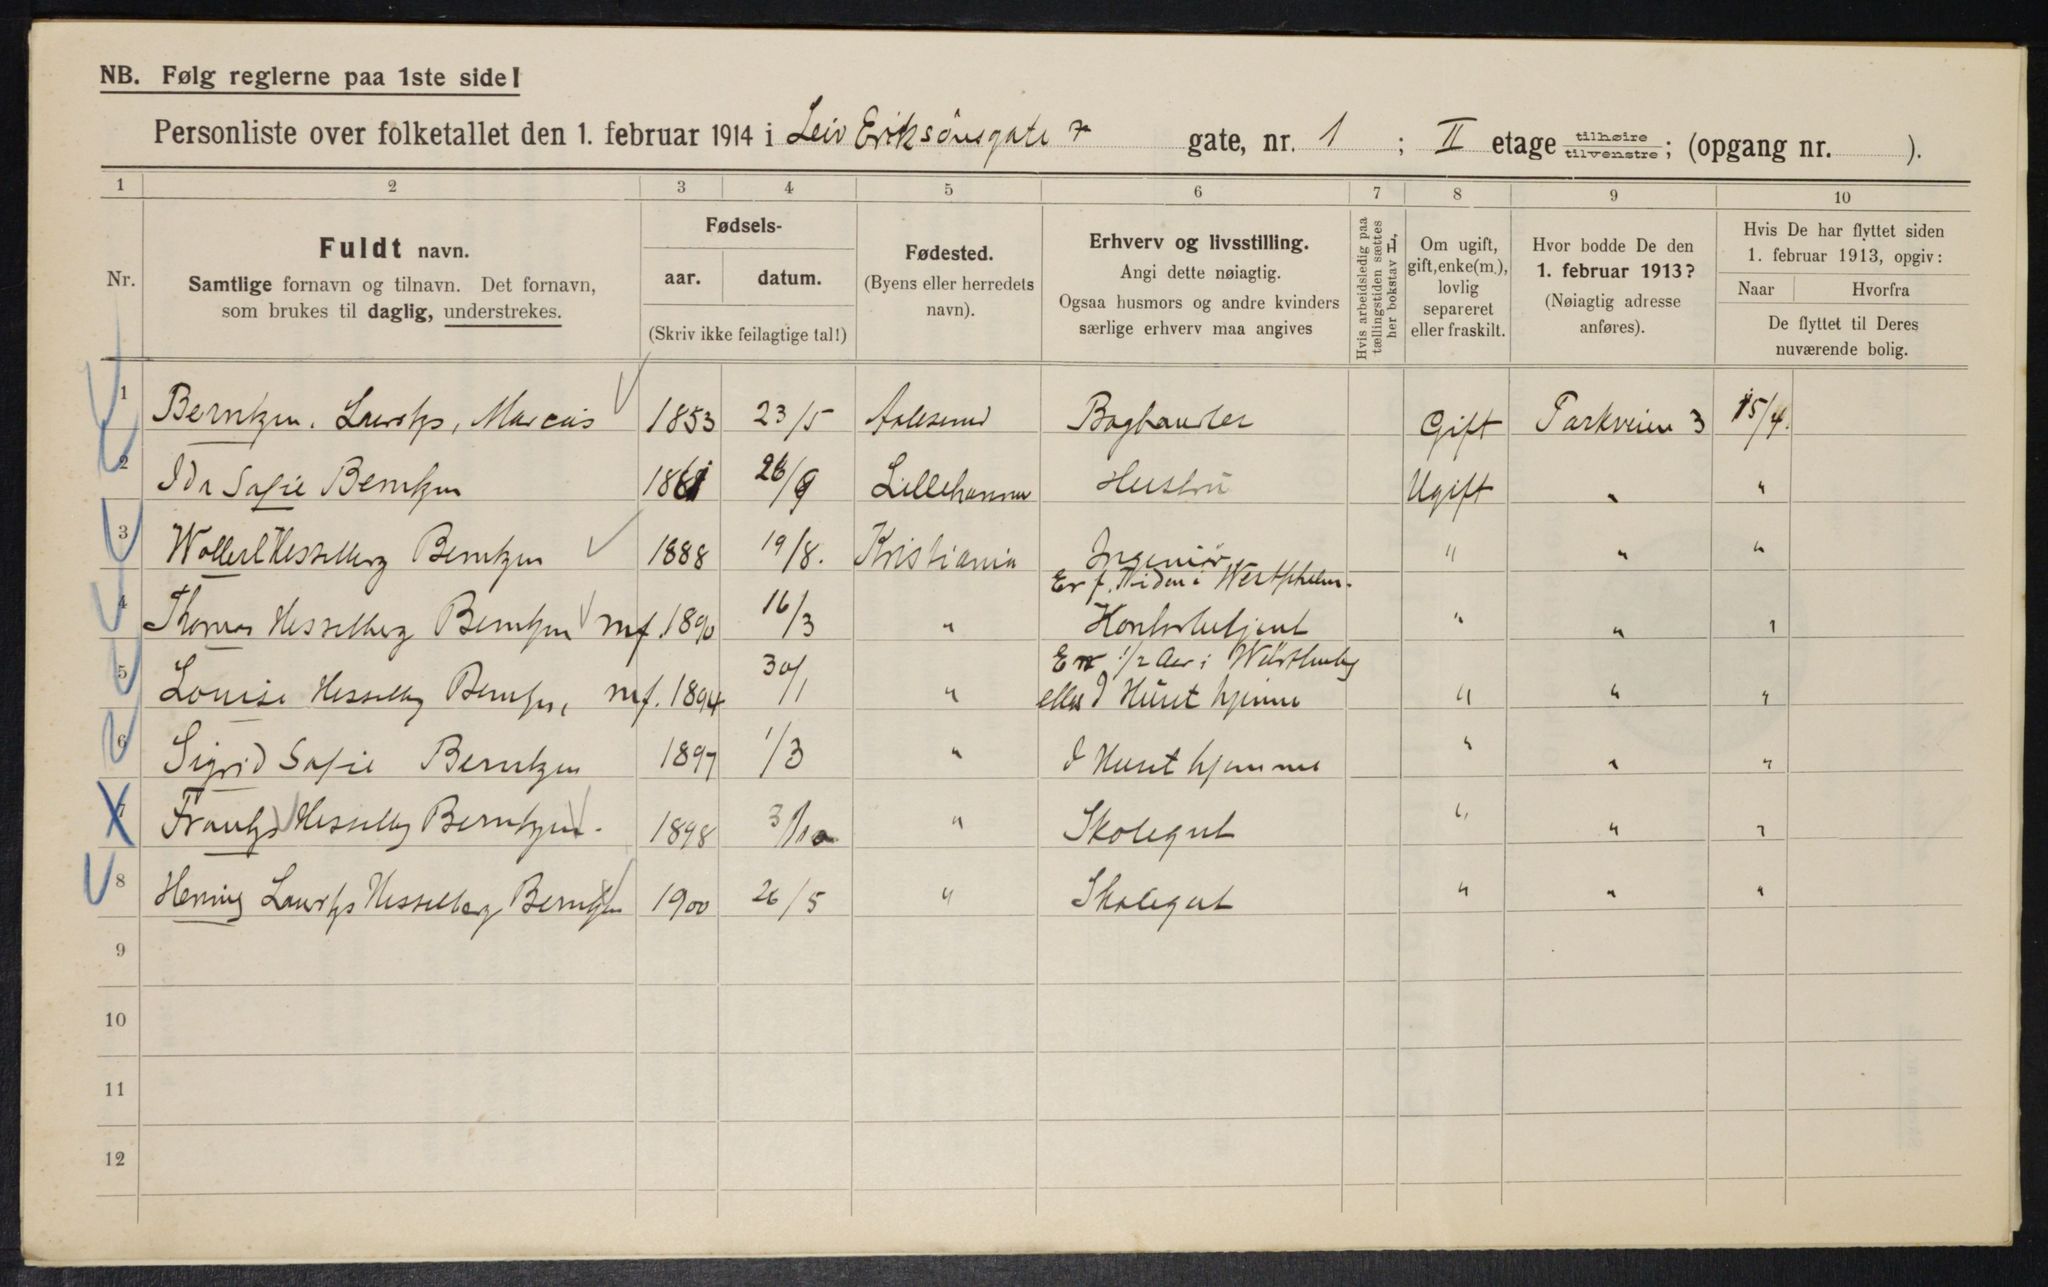 NB. Følg reglerne paa 1ste side!
Personliste over folketallet den 1. februar 1914 i Leiv Eriksönsgate gate, nr. 1 ; II etage tilhøire tilvenstre ; (opgang nr. ).
1 2 3 4 5 6 7 8 9 10
Nr.
Fuldt navn.
Samtlige fornavn og tilnavn. Det fornavn,
som brukes til daglig, understrekes.
Fødsels-
aar. datum.
(Skriv ikke feilagtige tal!)
Fødested.
(Byens eller herredets
navn).
Erhverv og livsstilling.
Angi dette nøiagtig.
Ogsaa husmors og andre kvinders
særlige erhverv maa angives
Hvis arbeidsledig paa
tællingstiden sættes
her bokstav L,
Om ugift,
gift, enke(m.),
lovlig
separeret
eller fraskilt.
Hvor bodde De den
1. februar 1913?
(Nøiagtig adresse
anføres).
Hvis De har flyttet siden
1. februar 1913, opgiv:
Naar Hvorfra
De flyttet til Deres
nuværende bolig.
1 Berntzen, Lauritz, Marcus 1853 23/5 Aalesund Boghandler Gift Parkveien 3 15/4.
2 Ida Sofie Berntzen 1861 26/9 Lillehammer Hustru Ugift " "
3 Wollert Hesselberg Berntzen 1888 19/8. Kristiania Ingeniør " " "
Er f. Tiden i
4 Thomas Hesselberg Berntzen mf. 1890 16/3 " Kontorbetjent " " "
Er 1/2 Aar i
5 Louise Hesselbg Berntzen, mf. 1894 30/1 " ellers I Huset hjemme " " "
6 Sigrid Sofie Berntzen 1897 1/3 " I Huset hjemme " " "
7 Frantz Hesselbg Berntzen. 1898 3/10 " Skolegut " " "
8 Henning Lauritz Hesselberg Berntzen 1900 26/5 " Skolegut " " "
9
10
11
12